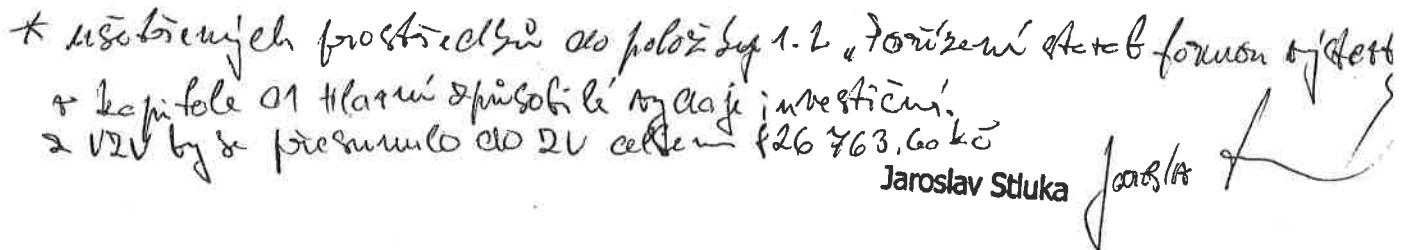 * ušetřených prostředků do položky 1.2 „Pořízení staveb formou výstavb
v kapitole 01 Hlavní způsobilé výdaje investiční.
z VZV by se přesunulo do ZV celkem 826 763,60 kč
Jaroslav Stluka